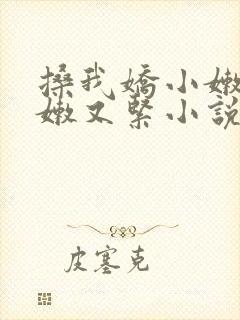 搡我嬌小嫩
嫩又緊小說
皮塞克